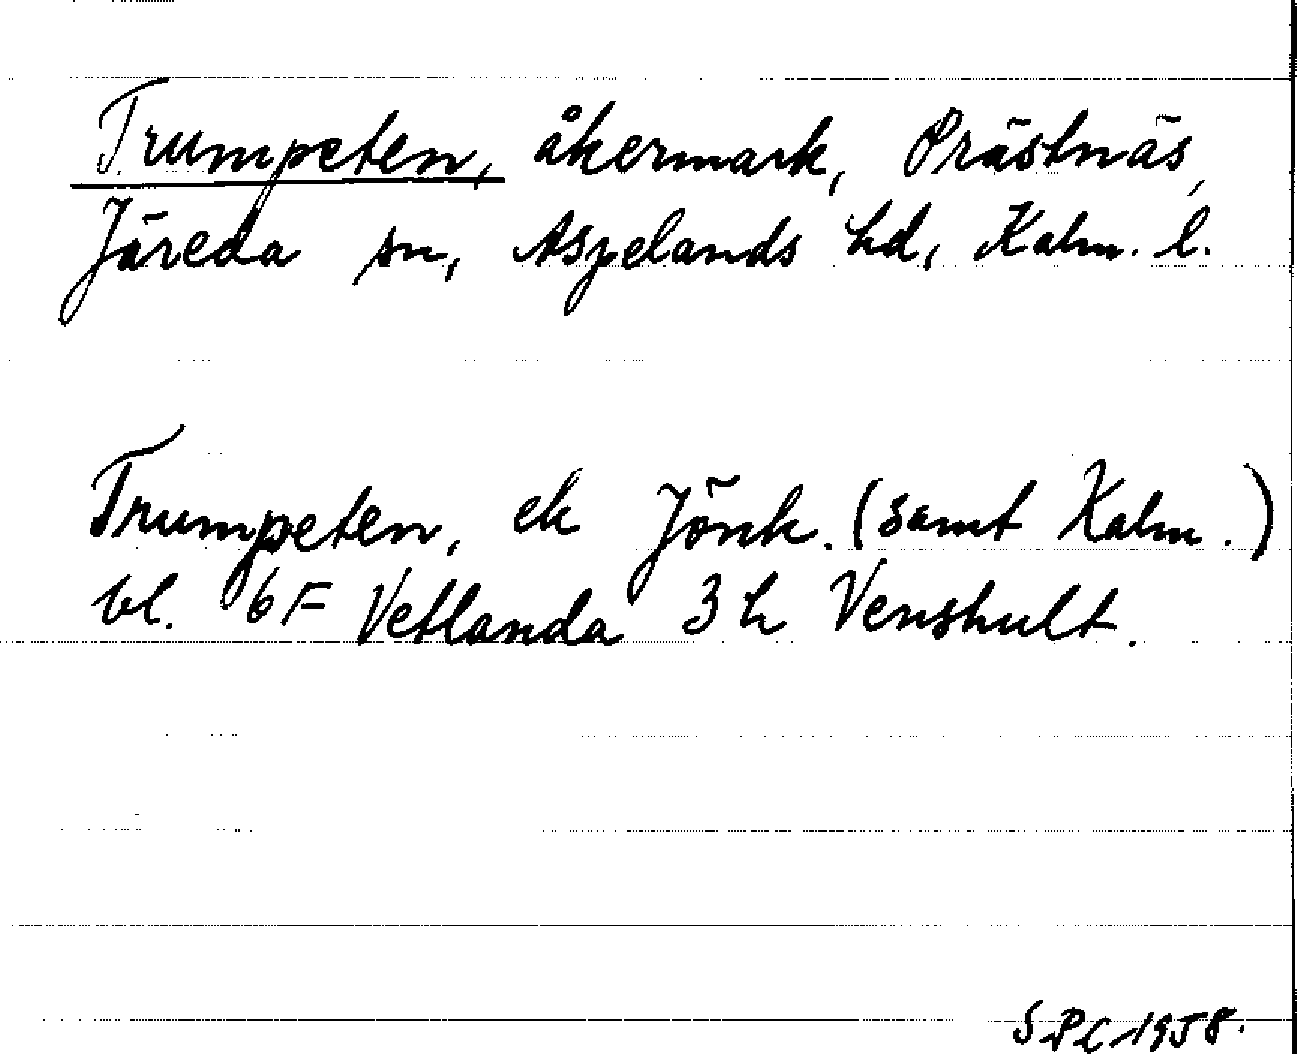 Trumpeten, åkermark, Prästnäs,
Järeda sn, Aspelands hd, Kalm. l.
Trumpeten, ek Jönk. (samt Kalm.)
bl. 6F Vetlanda 3h Venshult.
SPC 1958.